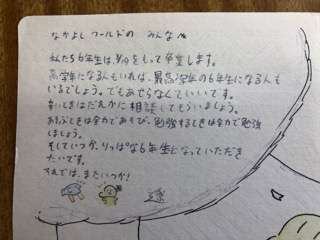 なかよしワールドの みんなへ
私たち6年生は、をもって卒業します。
高学年になる人もいれば、最高学年の6年生になる人も
いるでしょう。でもあせらなくていいです。
しいときはだれかに相談してもらいましょう。
あそぶときは全力であそび、勉強するときは全力で勉強
しましょう。
そしていつか、りっぱな6年生になっていただき
たいです。
それでは、またいつか!